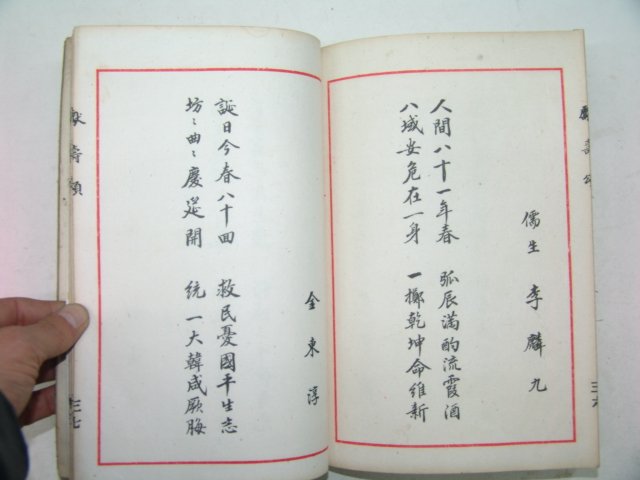 獻壽頌
儒生 李麟九
人間八十一年春 弧辰滿酌流霞酒
八域安危在一身 一擲乾坤命維新
三六
金東淳
誕日今春八十回 救民憂國平生志
坊〻曲〻慶筵開 統一大韓成厥
獻壽頌
三七